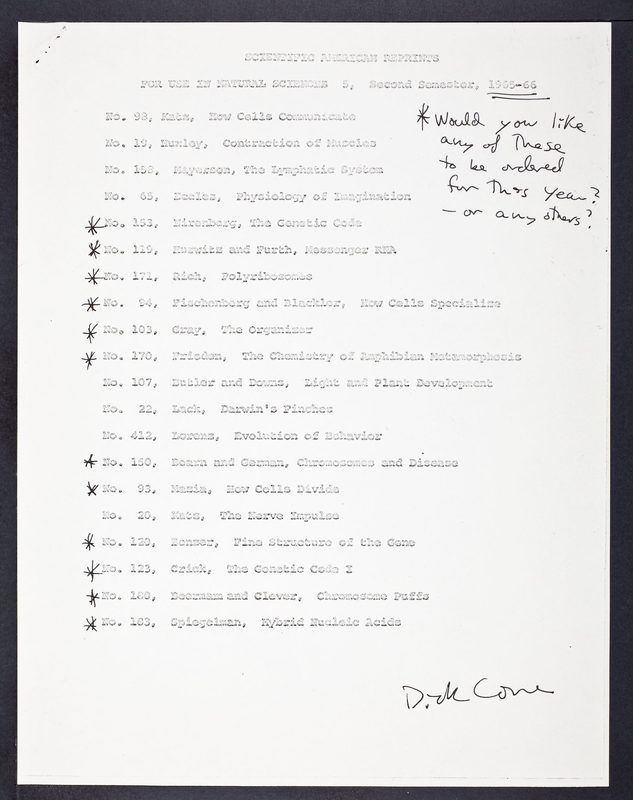 SCIENTIFIC AMERICAN REPRINTS
FOR USE IN NATURAL SCIENCES 5, Second Semester, 1965-66
* Would you like
any of these
to be ordered
for this year?
- or any others?
No. 98, Katz, How Cells Communicate
No. 19, Huxley, Contraction of Muscles
No. 158, Mayerson, The Lymphatic System
No. 65, Eccles, Physiology of Imagination
* No. 153, Nirenberg, The Genetic Code
* No. 119, Hurwitz and Furth, Messenger RNA
* No. 171, Rich, Polyribosomes
* No. 94, Fischenberg and Blackler, How Cells Specialize
* No. 103, Gray, The Organizer
* No. 170, Frieden, The Chemistry of Amphibian Metamorphosis
No. 107, Butler and Downs, Light and Plant Development
No. 22, Lack, Darwin's Finches
No. 412, Lorenz, Evolution of Behavior
* No. 150, Bearn and German, Chromosomes and Disease
* No. 93, Mazia, How Cells Divide
No. 20, Katz, The Nerve Impulse
* No. 120, Benzer, Fine Structure of the Gene
* No. 123, Crick, The Genetic Code I
* No. 180, Beermann and Clever, Chromosome Puffs
* No. 183, Spiegelman, Hybrid Nucleic Acids
Dick Cone